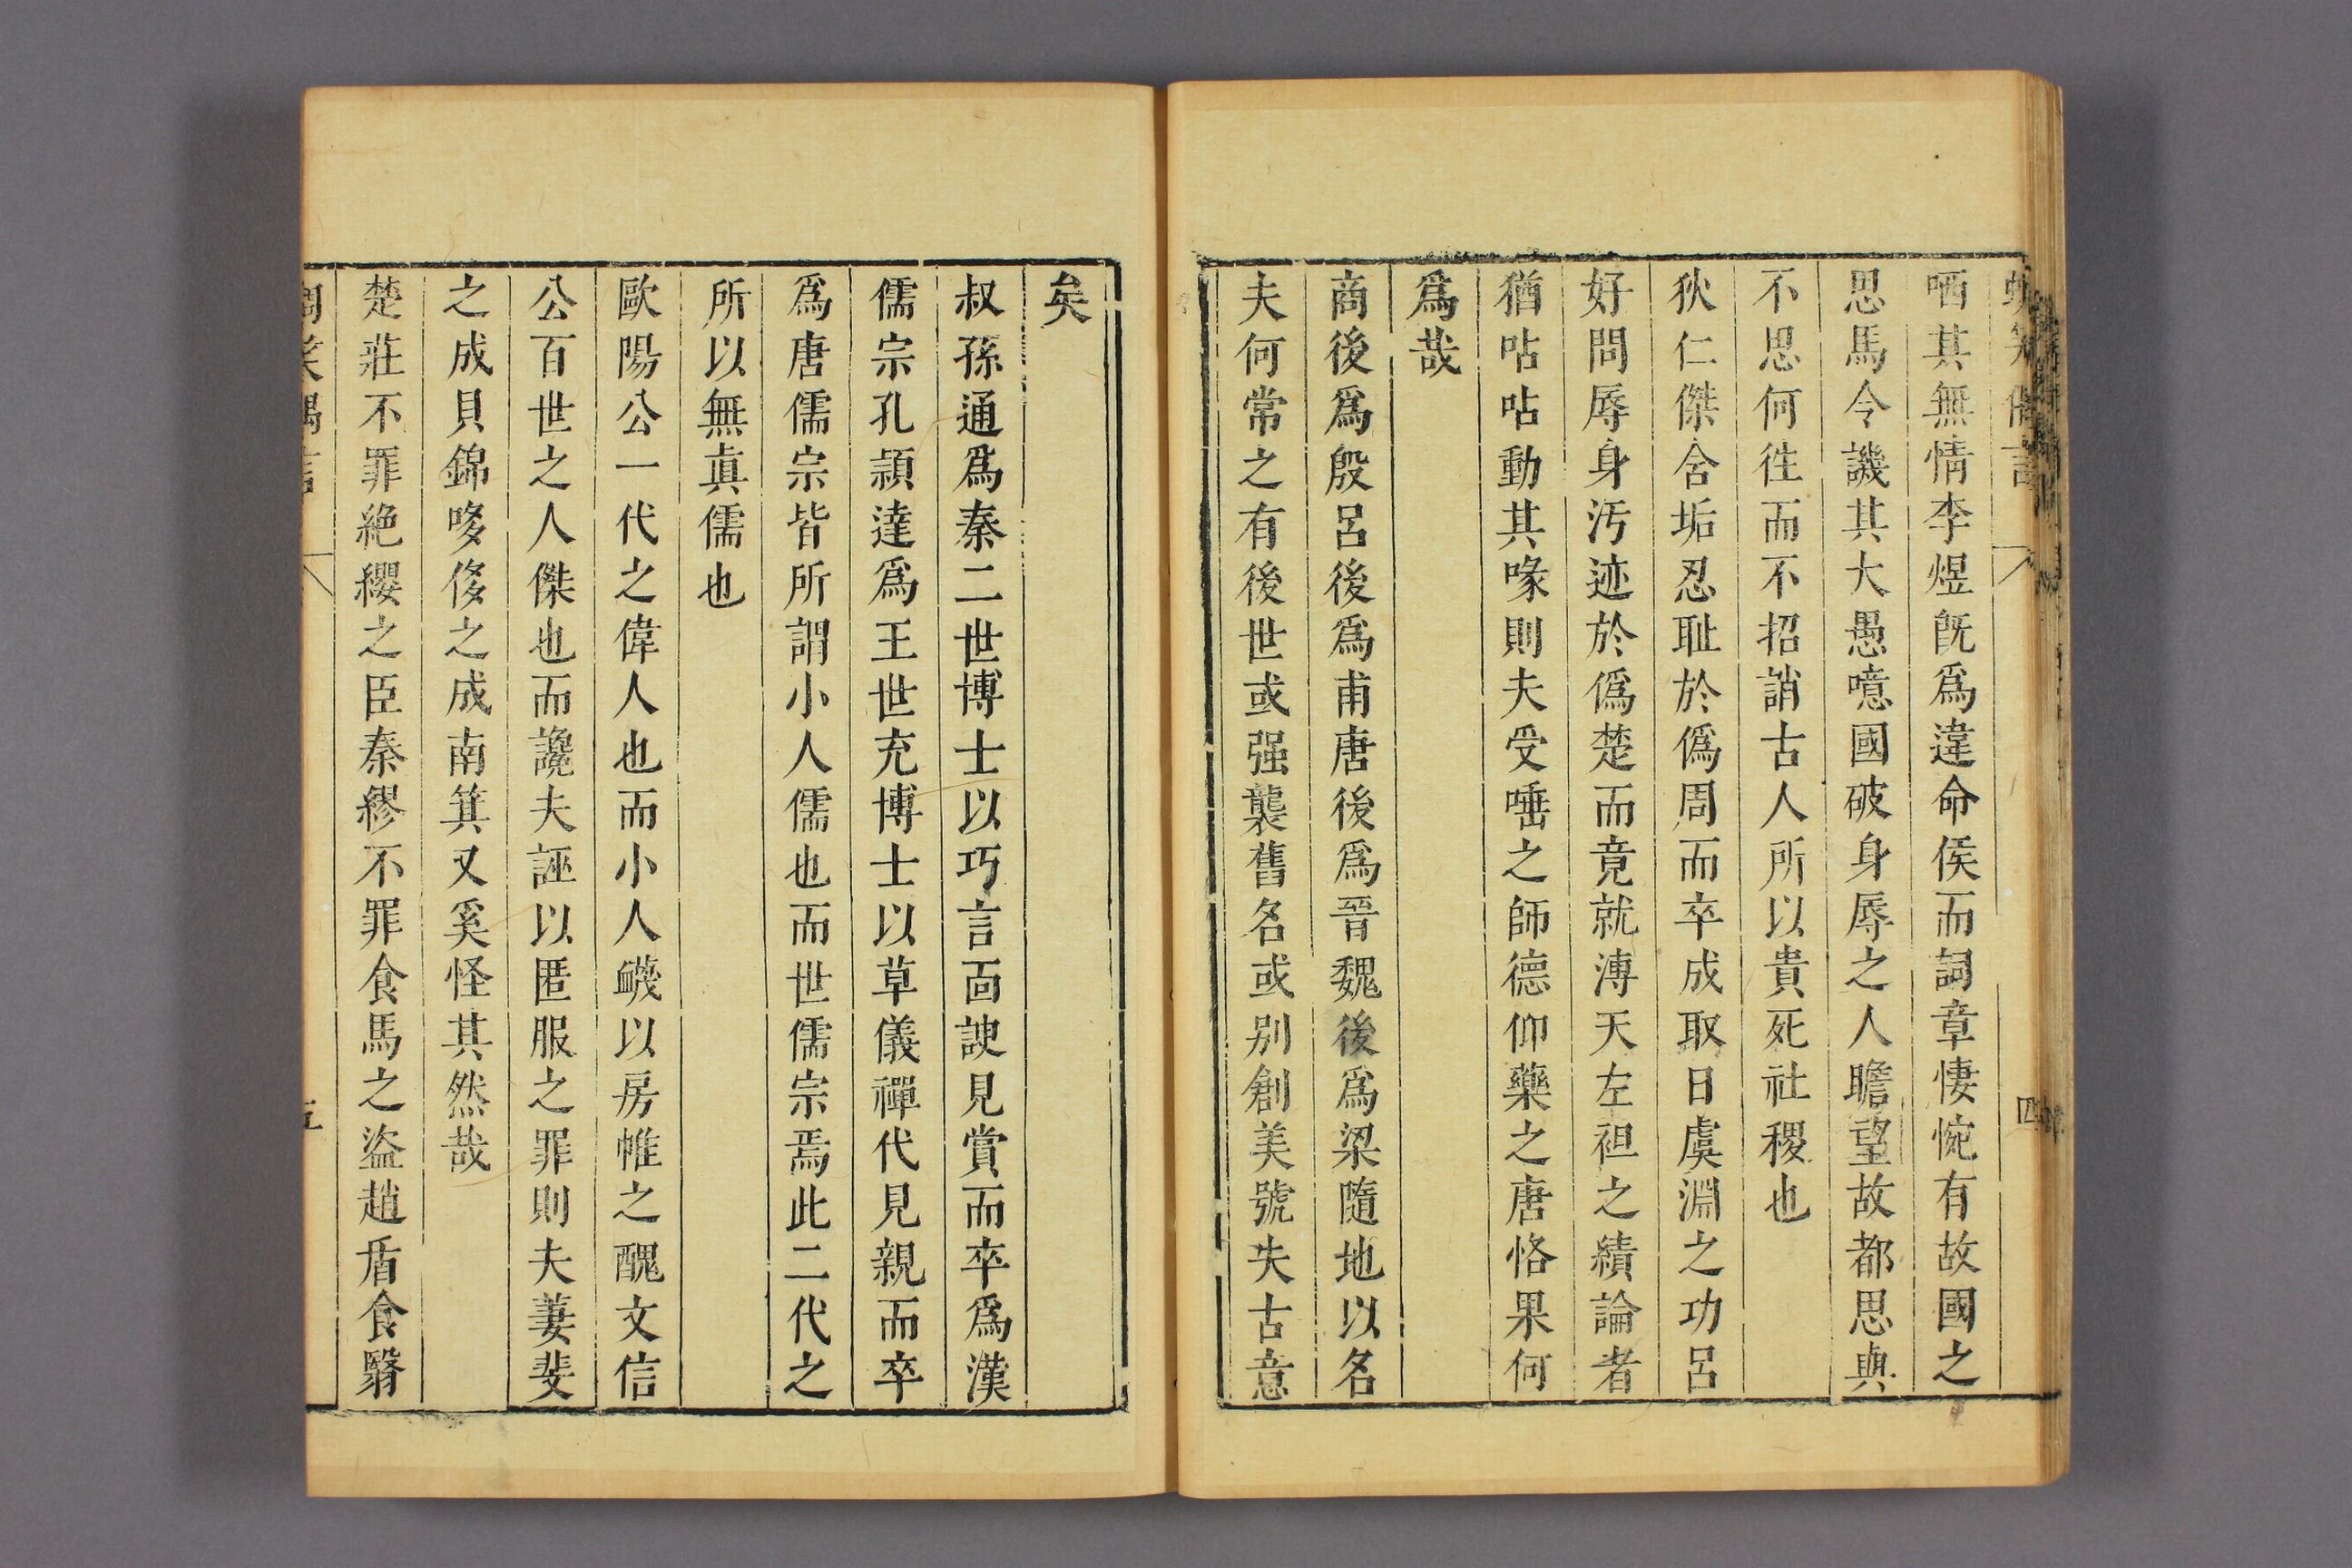 哂其無情李煜旣爲違命侯而詞章悽惋有故國之
思馬令譏其大愚噫國破身辱之人瞻望故都思與
不思何徃而不招誚古人所以貴死社稷也
狄仁傑含垢忍耻於僞周而卒成取日虞淵之功呂
好問辱身汚迹於僞楚而竟就溥天左袒之績論者
猶呫呫動其喙則夫受唾之師德仰藥之唐恪果何
爲哉
商後爲殷呂後爲甫唐後爲晉魏後爲梁隨地以名
夫何常之有後世或强襲舊名或别創美號失古意
矣
叔孫通爲秦二世博士以巧言面諛見賞而卒爲漢
儒宗孔頴達爲王世充博士以草儀禪代見親而卒
爲唐儒宗皆所謂小人儒也而世儒宗焉此二代之
所以無眞儒也
歐陽公一代之偉人也而小人衊以房帷之醜文信
公百世之人傑也而讒夫誣以匿服之罪則夫萋斐
之成貝錦哆侈之成南箕又奚怪其然哉
楚莊不罪絶纓之臣秦繆不罪食馬之盗趙盾食翳